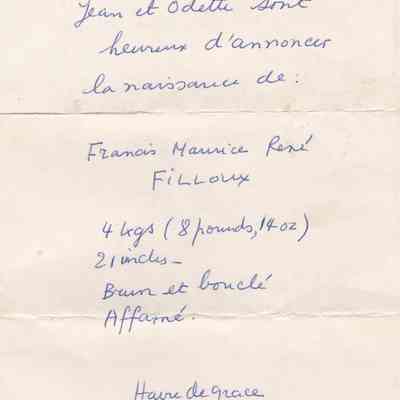 Jean et Odette sont
heureux d'annoncer
la naissance de :
Francis Maurice René
FILLOUX
4 kgs (8 pounds, 14 oz)
21 inches –
Brun et bouclé
Affamé.
Havre de Grace